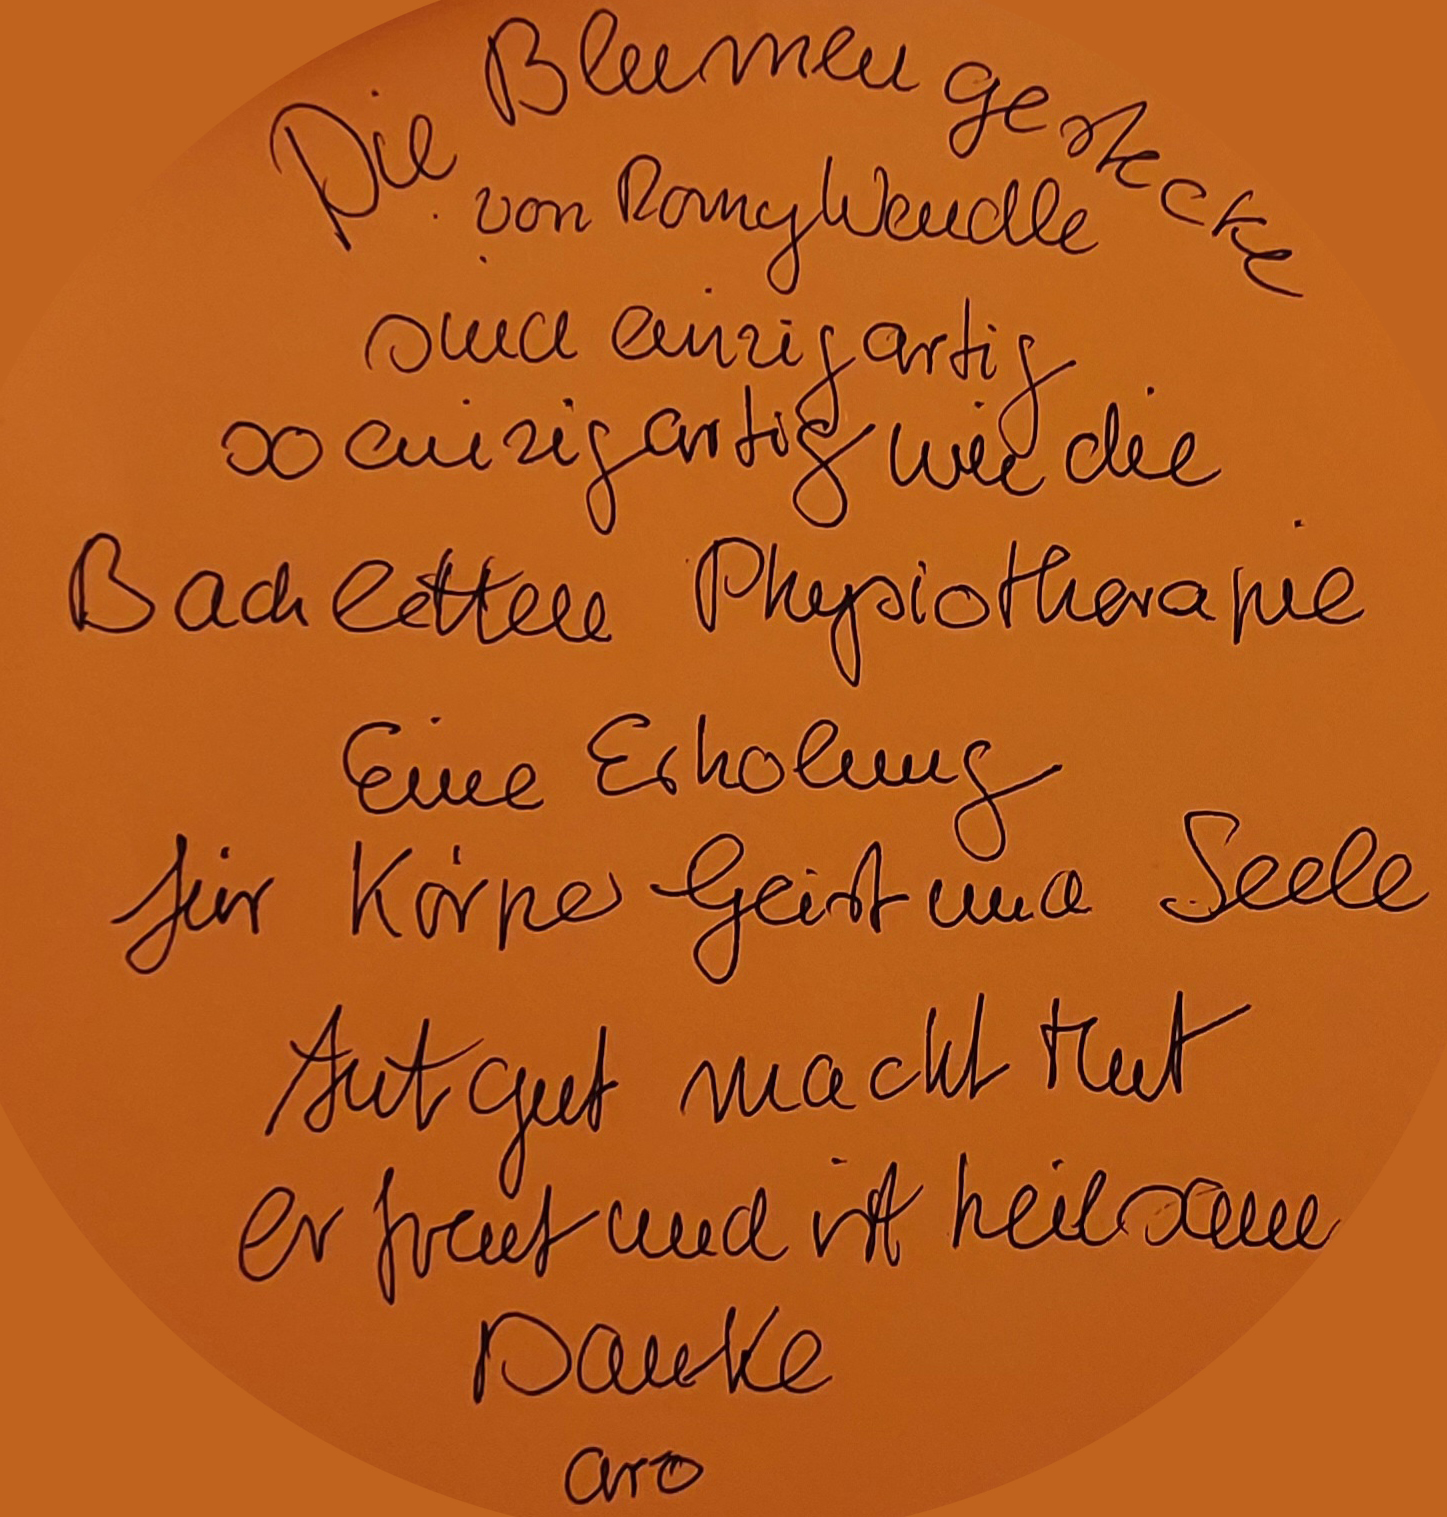 Die Blumengestecke
von Romy Wendle
sind einzigartig
so einzigartig wie die
Bachletten Physiotherapie
Eine Erholung
für Körper Geist und Seele
tut gut macht Mut
erfreut und ist heilsam
Danke
aro